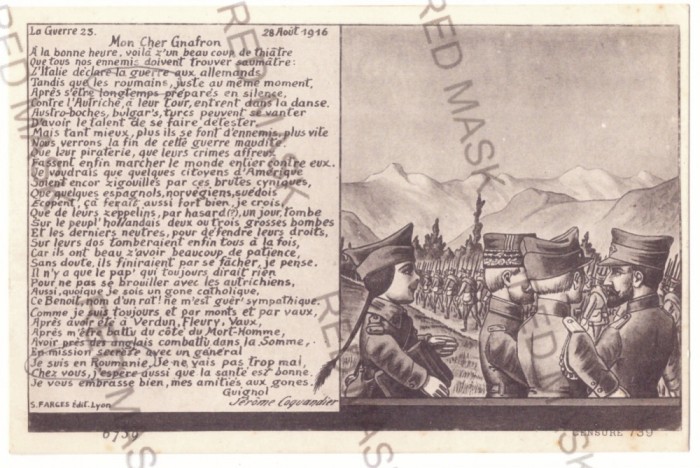 La Guerre 23. 28 Août 1916
Mon Cher Gnafron
À la bonne heure, voilà z'un beau coup de thiâtre
Que tous nos ennemis doivent trouver saumâtre:
L'Italie déclare la guerre aux allemands
Tandis que les roumains, juste au même moment,
Après s'être longtemps préparés en silence,
Contre l'Autriche, à leur tour, entrent dans la danse.
Austro-boches, bulgar's, turcs peuvent se vanter
D'avoir le talent de se faire détester.
Mais tant mieux, plus ils se font d'ennemis, plus vite
Nous verrons la fin de cette guerre maudite,
Que leur piraterie, que leurs crimes affreux
Fassent enfin marcher le monde entier contre eux.
Je voudrais que quelques citoyens d'Amérique
Soient encor zigouillés par ces brutes cyniques,
Que quelques espagnols, norvégiens, suédois
Ecopent, ça ferait aussi fort bien, je crois,
Que de leurs zeppelins, par hasard(?), un jour, tombe
Sur le peupl' hollandais deux ou trois grosses bombes
Et les derniers neutres, pour défendre leurs droits,
Sur leurs dos tomberaient enfin tous à la fois,
Car ils ont beau z'avoir beaucoup de patience,
Sans doute, ils finiraient par se fâcher, je pense.
Il n'y a que le pap' qui toujours dirait rien
Pour ne pas se brouiller avec les autrichiens,
Aussi, quoique je sois un gone catholique,
Ce Benoit, nom d'un rat! ne m'est guèr' sympathique.
Comme je suis toujours et par monts et par vaux,
Après avoir été à Verdun, Fleury, Vaux,
Après m'être battu du côté du Mort-Homme,
Avoir près des anglais combattu dans la Somme,
En mission secrète avec un général
Je suis en Roumanie, Je ne vais pas trop mal,
Chez vous, j'espère aussi que la santé est bonne.
Je vous embrasse bien, mes amitiés aux gones.
Guignol
Jérôme Coquandier
S. FARGES édit. Lyon
6739
CENSURE 739
RED MASK